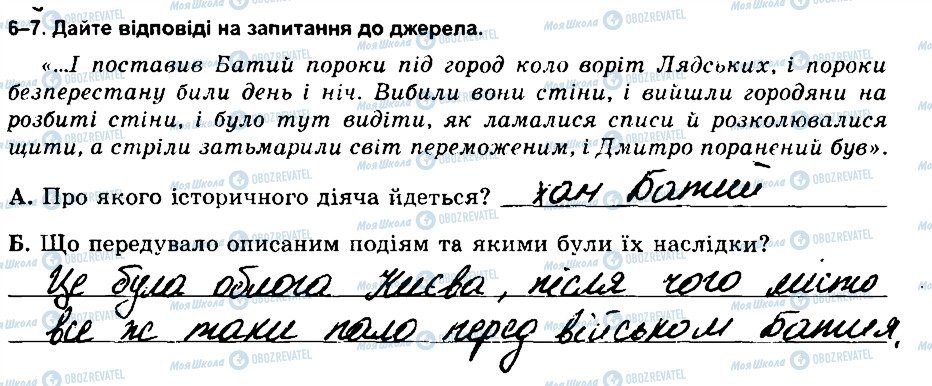 6–7. Дайте відповіді на запитання до джерела.
«...І поставив Батий пороки під город коло воріт Лядських, і пороки
безперестану били день і ніч. Вибили вони стіни, і вийшли городяни на
розбиті стіни, і було тут видіти, як ламалися списи й розколювалися
щити, а стріли затьмарили світ переможеним, і Дмитро поранений був».
А. Про якого історичного діяча йдеться? хан Батий
Б. Що передувало описаним подіям та якими були їх наслідки?
Це була облога Києва, після чого місто
все ж таки пало перед військом Батия.